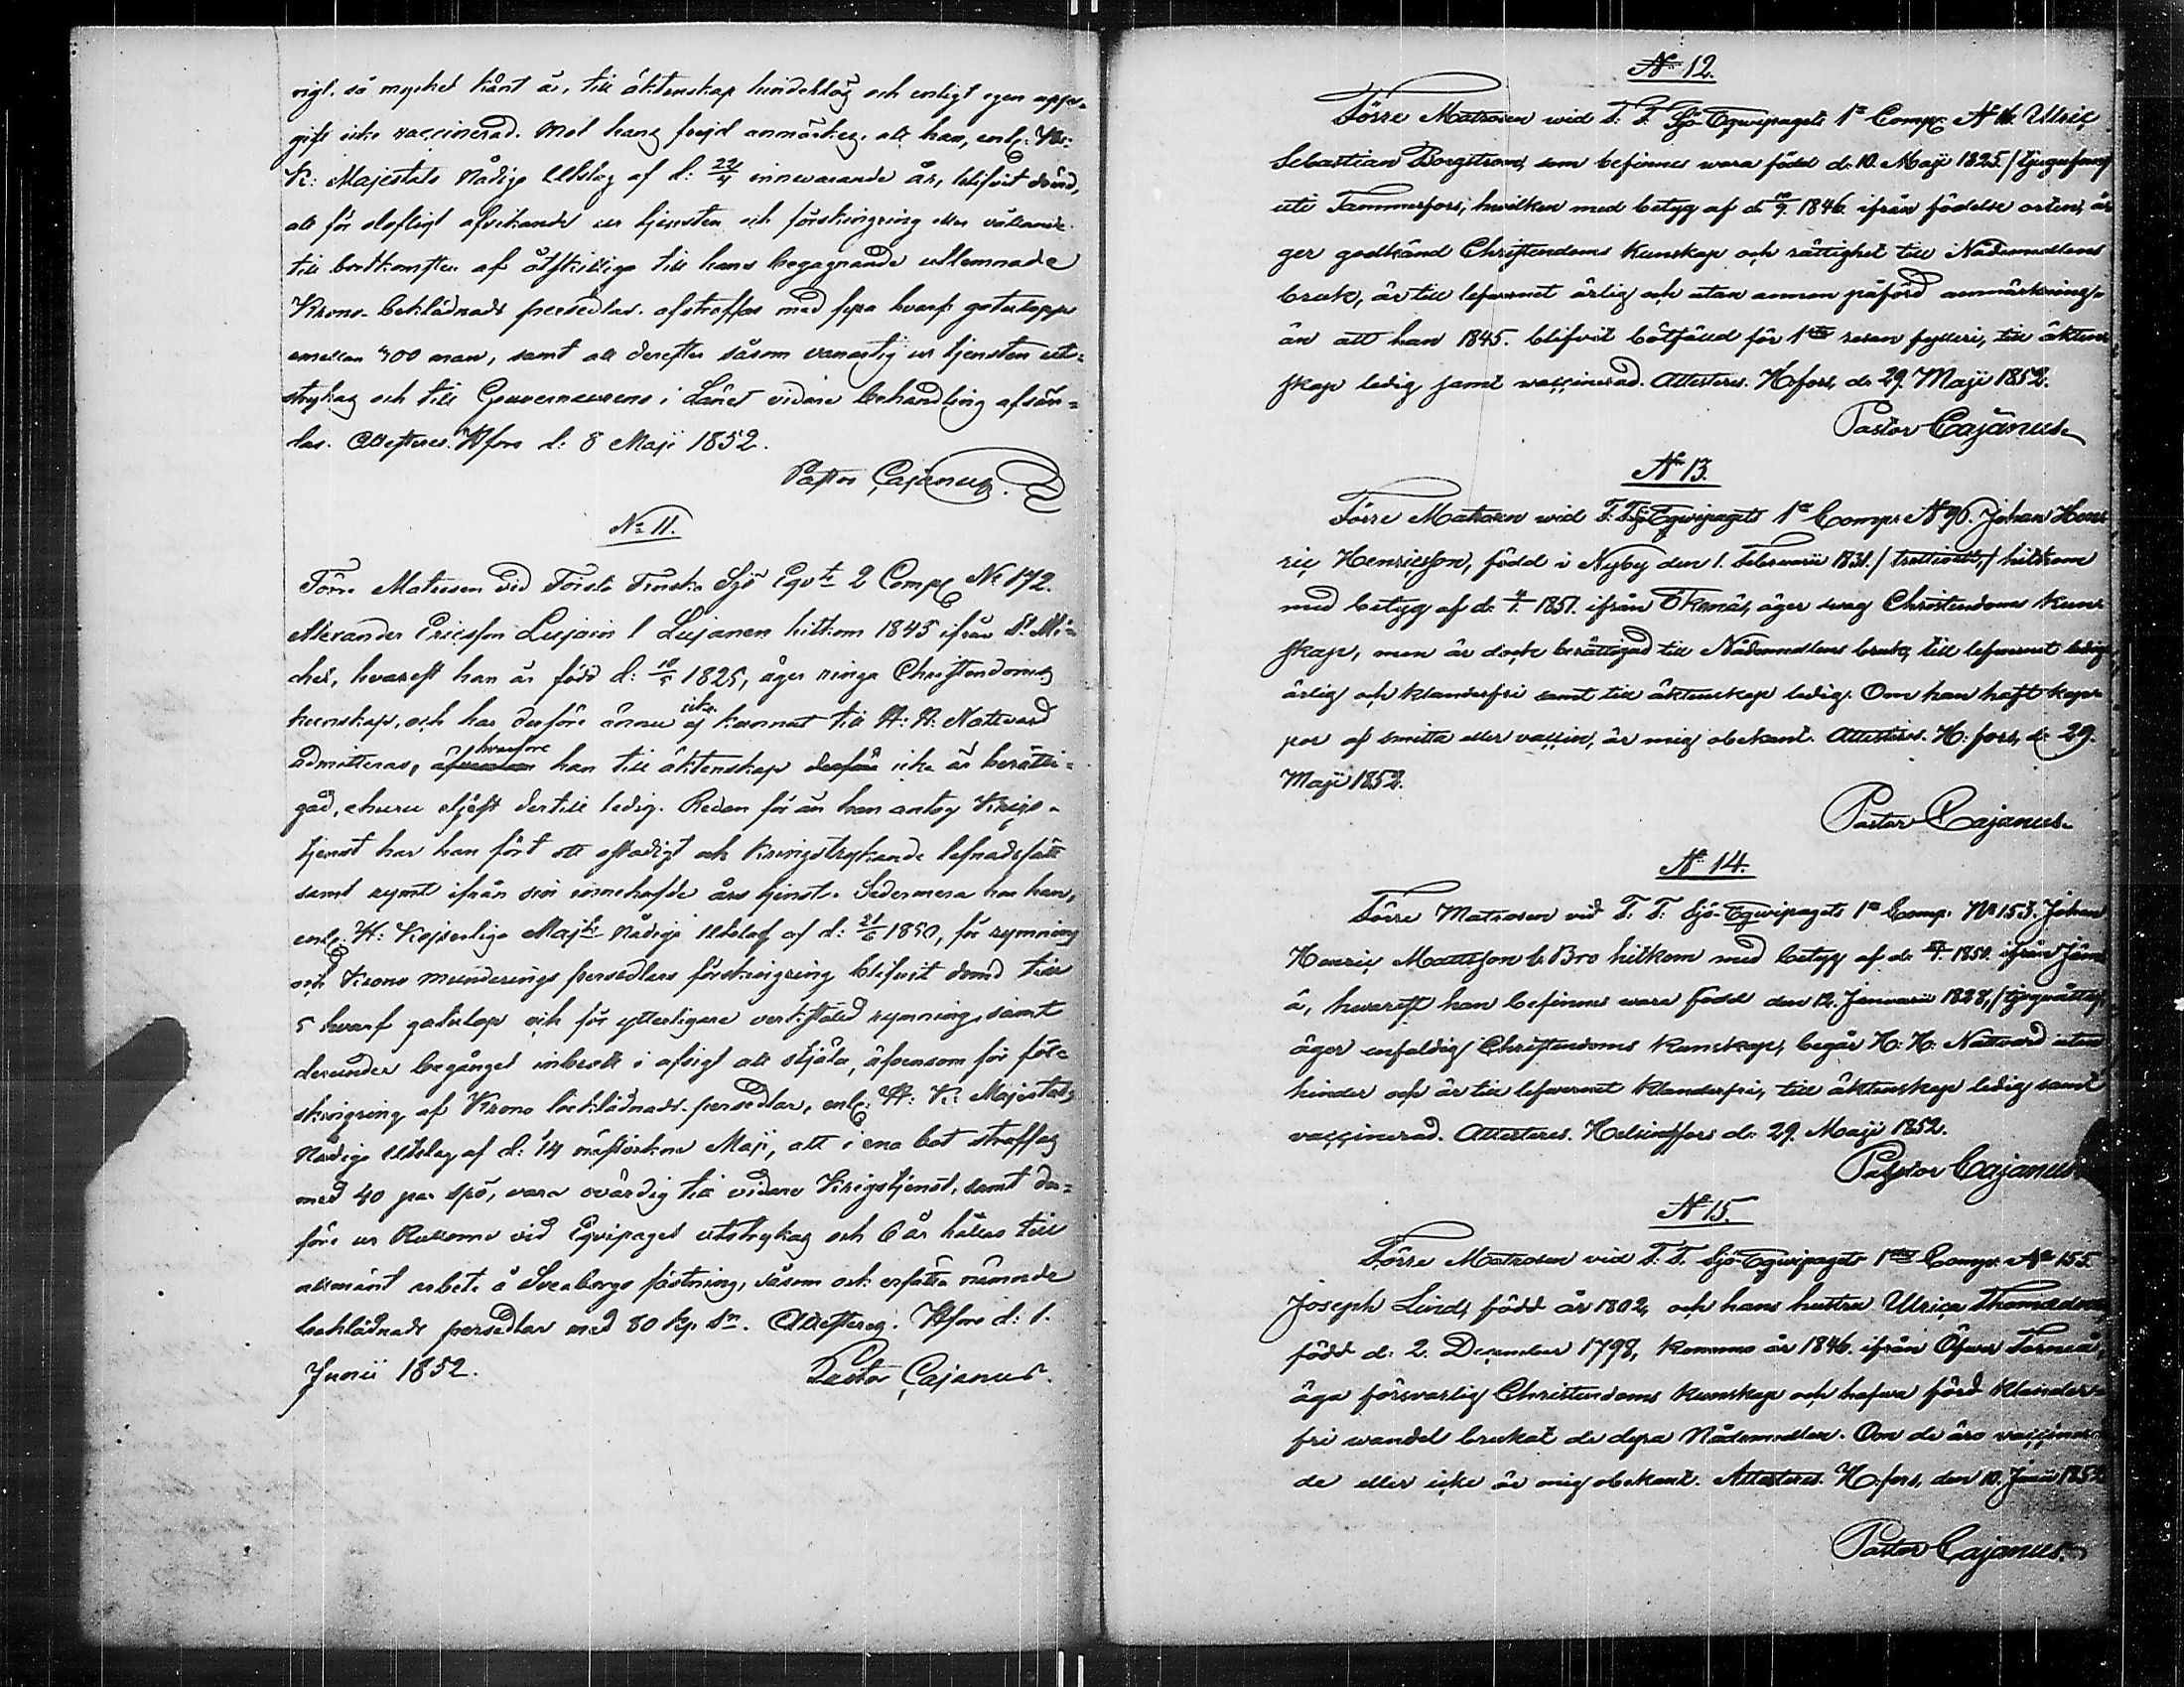 rigt. så mycket känt är, till äktenskap hinderslös och enligt egen uppe-
gift icke vaccinerad. Mot hans frejd anmärkes, att han, enl:
K: Majestäts Nådiga Utslag af d: 22/4 innevarande år, blifvit dömd,
att för olofligt afvikande ur tjensten och förskingring eller vållande
till bortkomsten af åtskilliga till hans begagnande utlemnade
Krono-beklädnads persedlar, afstraffas med fyra hvarf gatulopp
emellan 100 man, samt att derefter såsom vanartig ur tjensten ut-
strykas och till Gouverneurens i Länet vidare behandling afsän-
das. Attesteras. Hfors d: 8 Maji 1852.
Pastor Cajanus.
No 11.
Förre Matrosen vid Första Finska Sjö Eqv:ts 2 Comp: No 172.
Alexander Ericsson Lujain l Lujanen hitkom 1845 ifrån St. Mi-
chel, hvarest han är född d: 10/5 1825, äger ringa Christendoms
kunskap, och har derföre ännu ej icke kunnat till H: H: Nattvard
admitteras, hvarföre han till äktenskap derföre icke är berätti-
gad, ehuru eljest dertill ledig. Redan för än han antog Krigs-
tjenst har han fört ett ostadigt och kringstrykande lefnadssätt
samt rymt ifrån sin innehafde års tjenst. Sedermera har han,
enl: H: Kejserliga Maj:ts Nådiga Utslag af d: 21/6 1850, för rymning
och Krono munderings persedlars förskingring blifvit dömd till
5 hvarf gatulop och för ytterligare verkställd rymning, samt
derunder begånget inbrott i afsigt att stjäla, äfvensom för för-
skingring af Krono beklädnads-persedlar, enl: H: K: Majestäts
Nådiga Utslag af d: 14 nästlidne Maji, att i ena bot straffas
med 40 par spö, vara ovärdig till vidare Krigstjenst, samt der-
före ur Rullorna vid Eqvipaget utstrykas och 6 år hållas till
allmänt arbete å Sveaborgs fästning, såsom ock ersätta nämnde
beklädnads persedlar med 80 kp. Sr. Attesteras. Hfors d: 1.
Junii 1852.
Pastor Cajanus.
No 12.
Förre Matrosen wid F. F. Sjö-Eqwipagets 1a Comp: No 16. Ulric
Sebastian Borgström, som befinnes wara född d. 10. Maji 1825. /tjugufem/
uti Tammerfors, hwilken med betyg af d. 10/9. 1846. ifrån födelse orten, ä-
ger godkänd Christendoms kunskap och rättighet till Nådemedlens
bruk, är till lefwernet ärlig och utan annan påförd anmärkning,
än att han 1845. blifvit bötfälld för 1sta resan fylleri, till äkten-
skap ledig samt vaccinerad. Attesteras. H:fors, d: 29. Maji 1852.
Pastor Cajanus.
No 13.
Förre Matrosen wid F. F. Sjö Eqwipagets 1a Comp: No 96. Johan Hen-
ric Henricsson, född i Nyby den 1. Februarii 1831. /trettioett,/ hitkom
med betyg af d. 4/1. 1851. ifrån Ekenäs, äger swag Christendoms kun-
skap, men är dock berättigad till Nådemedlens bruk, till lefwernet
ärlig och klanderfri samt till äktenskap ledig. Om han haft kop-
por af smitta eller vaccin, är mig obekant. Attesteras. H:fors, d: 29.
Maji 1852.
Pastor Cajanus.
No 14.
Förre Matrosen vid F. F. Sjö-Eqwipagets 1a Comp. No 153. Johan
Henric Mattsson l. Bro hitkom med betyg af d. 1850. ifrån
å, hwarest han befinnes wara född den 12. Januarii 1828,/tjuguåtta/,
äger enfaldig Christendoms kunskap, begår H. H. Nattvard utan
hinder och är till lefwernet klanderfri, till äktenskap ledig samt
vaccinerad. Attesteras. Helsingfors d: 29. Maji 1852.
Pastor Cajanus
No 15.
Förre Matrosen vid F. F. Sjö-Eqwipagets 1sta Comp. No 155.
Joseph Lind, född år 1802, och hans hustru Ulrica Thomasdotter
född d: 2. December 1798, komna år 1846. ifrån Öfwer Torneå,
äga försvarlig Christendoms kunskap och hafwa förd klander-
fri wandel brukat de dyra Nådemedlen. Om de äro vaccinera-
de eller icke är mig obekant. Attesteras. H:fors, den 10. Junii 1852
Pastor Cajanus.